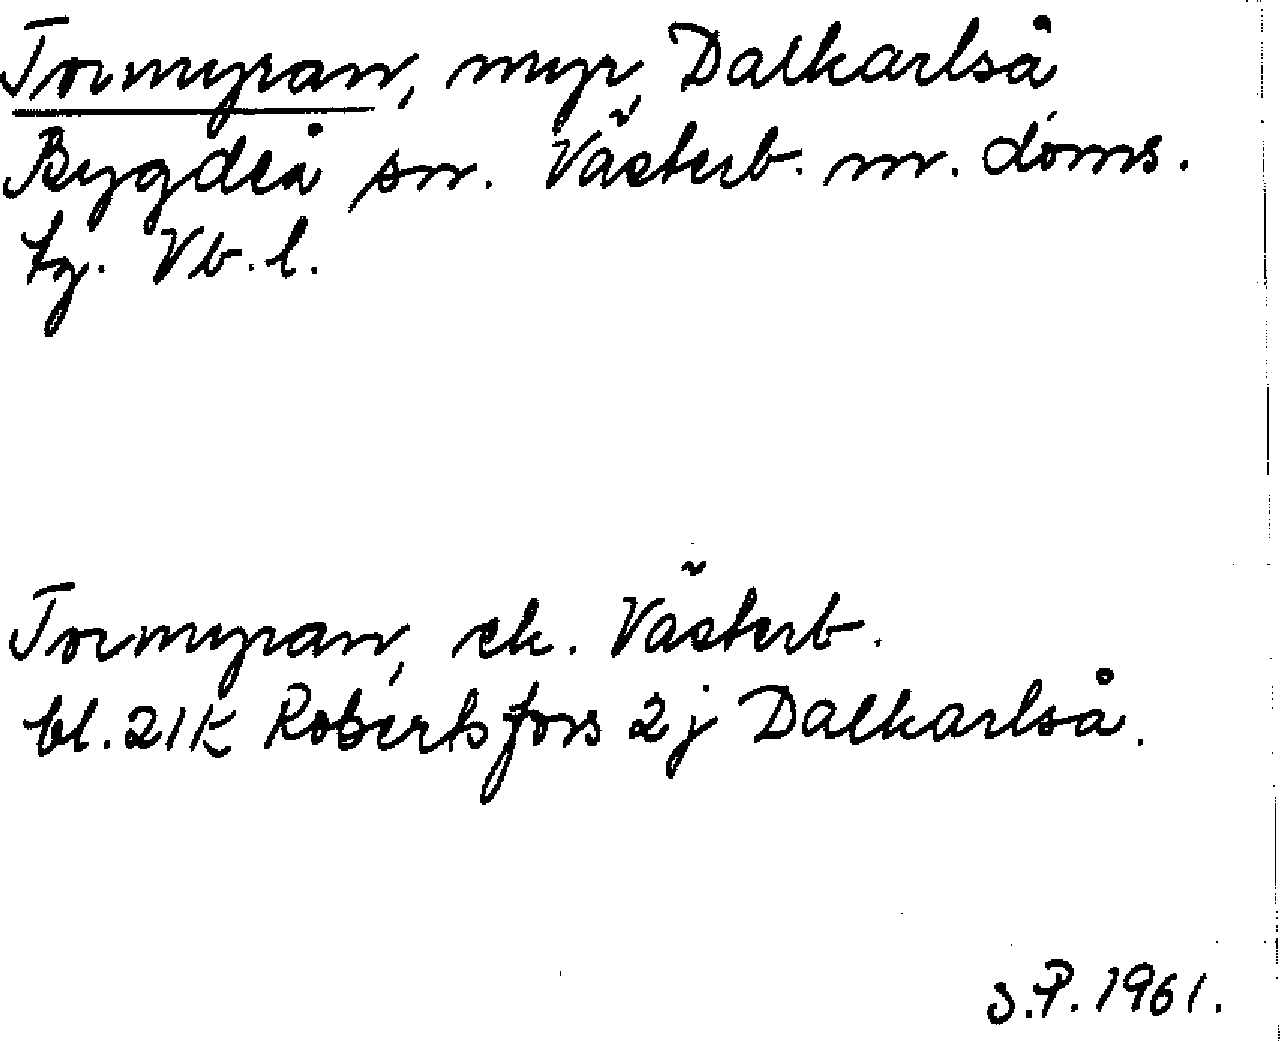 Tormyran, myr, Dalkarlså
Bygdeå sn. Västerb. n. doms.
tg. Vb. l.
Tormyran, ek. Västerb.
bl. 21K Robertsfors 2j Dalkarlså.
S.P. 1961.